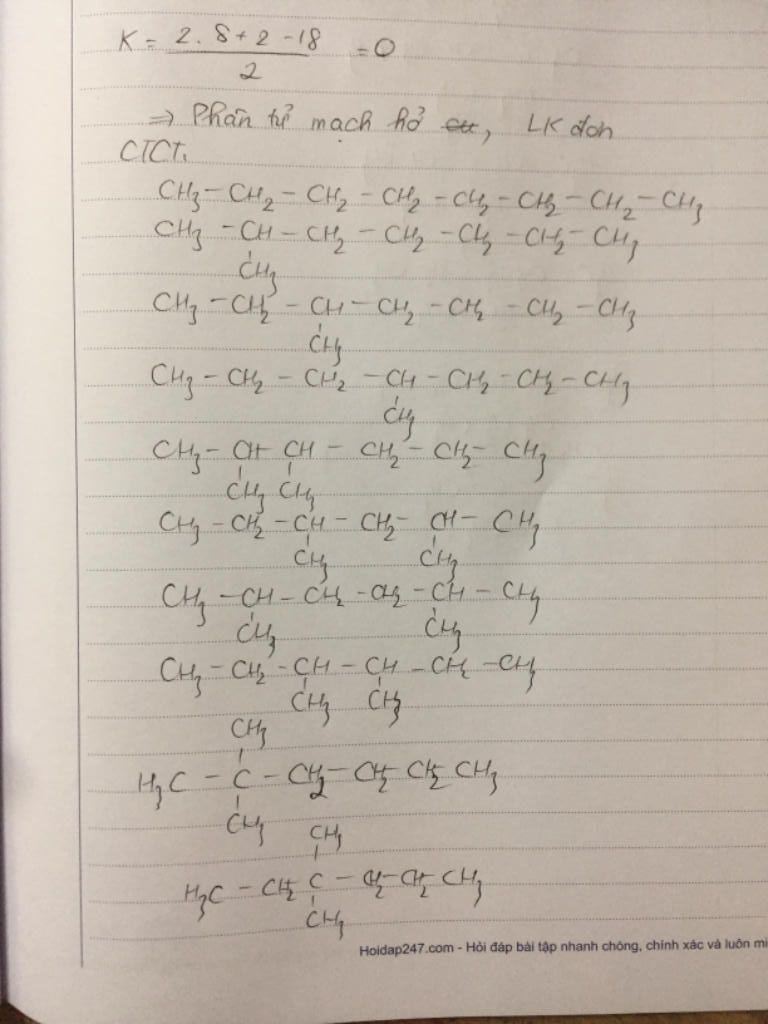 K = 2.8 + 2 - 18 / 2 = 0
=> Phân tử mạch hở, LK đơn
CTCT:
CH3 - CH2 - CH2 - CH2 - CH2 - CH2 - CH2 - CH3
CH3 - CH - CH2 - CH2 - CH2 - CH2 - CH3
CH3
CH3 - CH2 - CH - CH2 - CH2 - CH2 - CH3
CH3
CH3 - CH2 - CH2 - CH - CH2 - CH2 - CH3
CH3
CH3 - CH - CH - CH2 - CH2 - CH3
CH3 CH3
CH3 - CH2 - CH - CH2 - CH - CH3
CH3 CH3
CH3 - CH - CH2 - CH2 - CH - CH3
CH3 CH3
CH3 - CH2 - CH - CH - CH2 - CH3
CH3 CH3
CH3
H3C - C - CH2 - CH2 CH2 CH3
CH3
CH3
H3C - CH2 C - CH2 - CH2 CH3
CH3
Hoidap247.com - Hỏi đáp bài tập nhanh chóng, chính xác và luôn mi